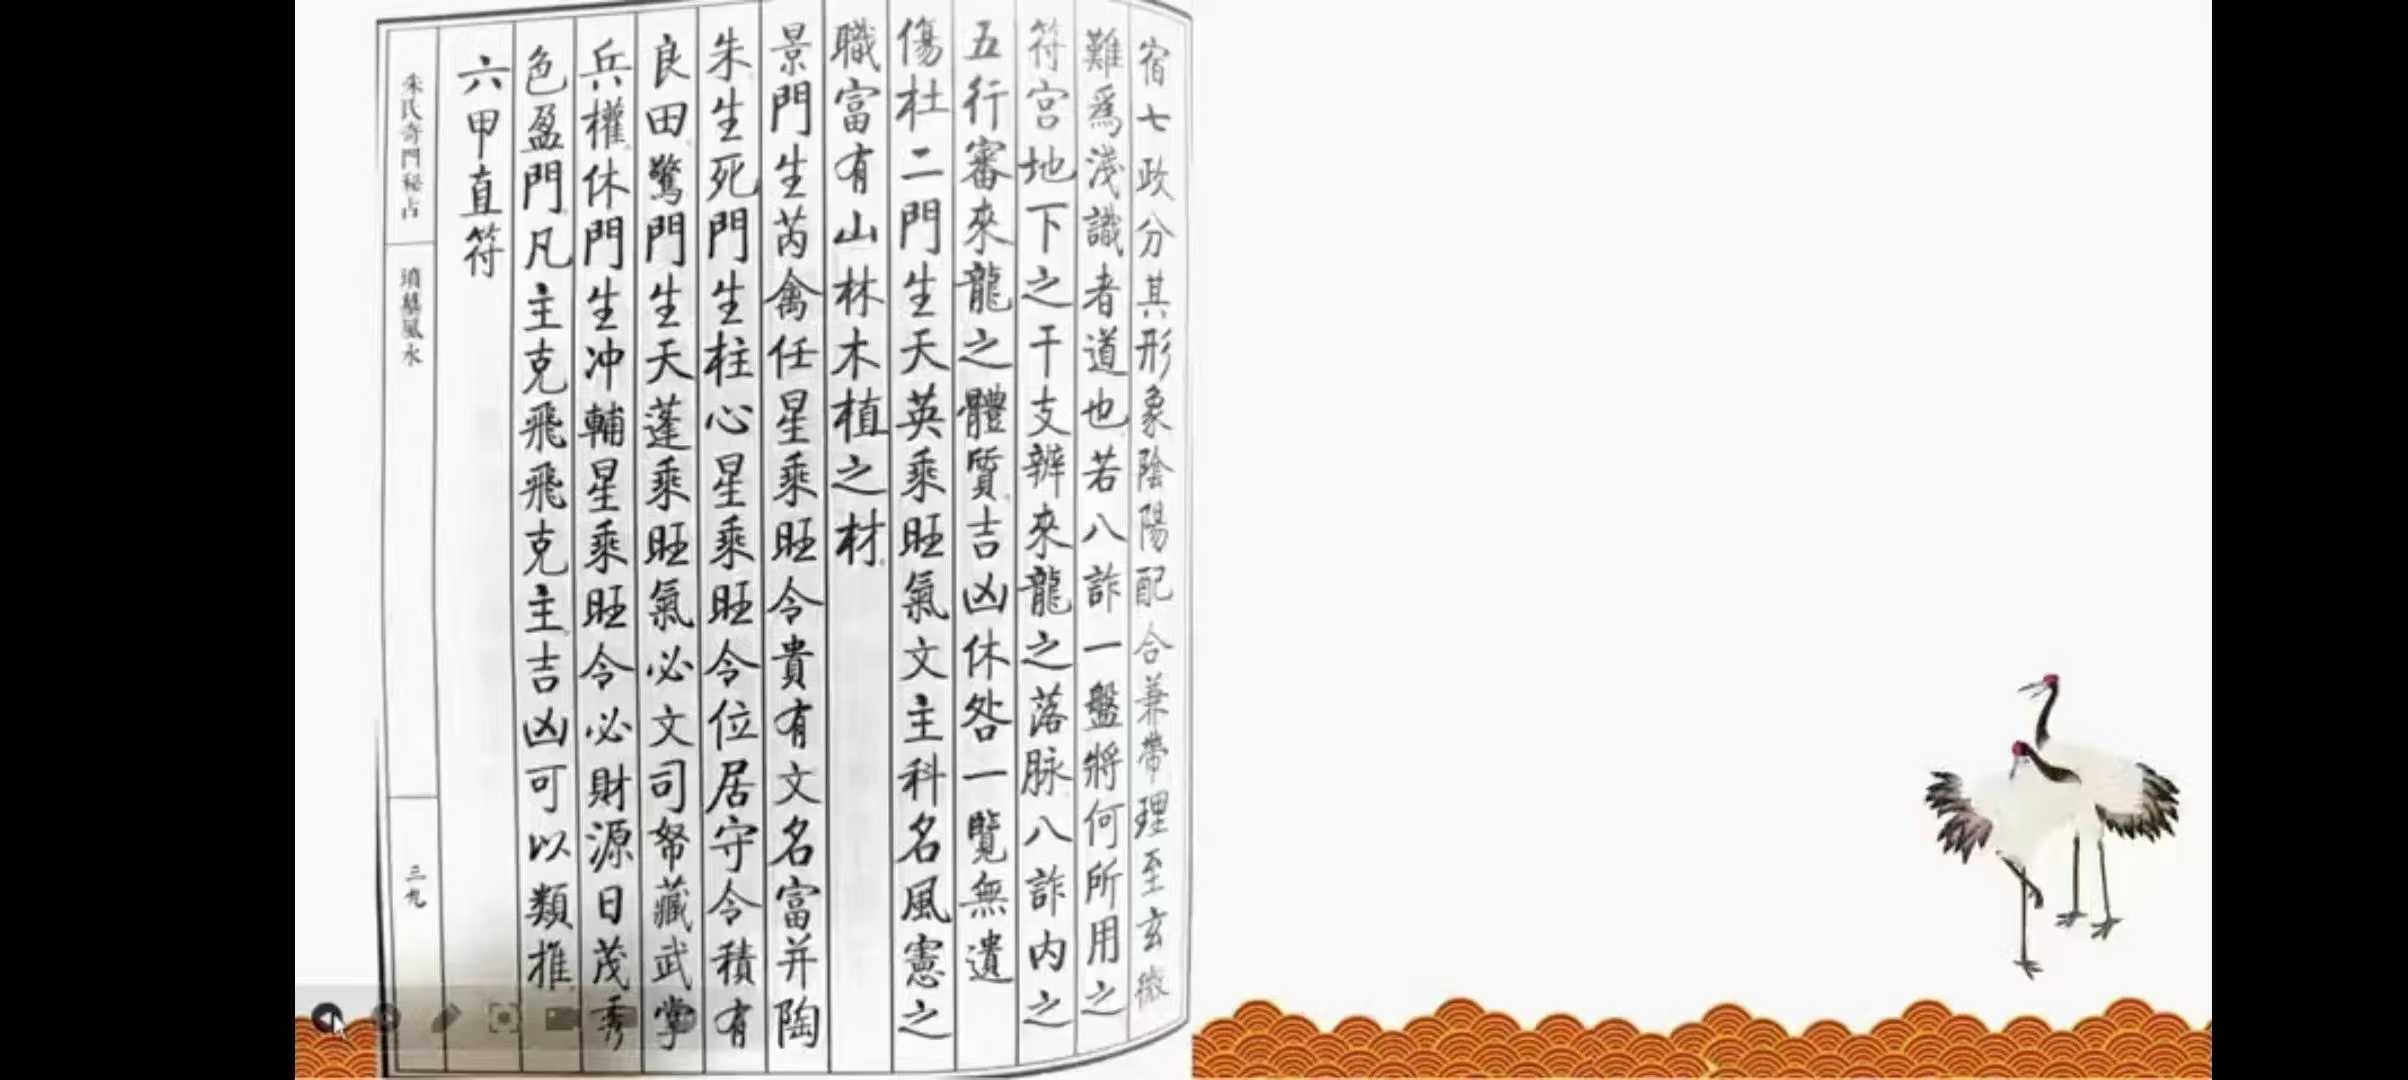 宿七政分其形象陰陽配合兼帶理至玄微
難爲淺識者道也若八詐一盤將何所用之
符宮地下之干支辨來龍之落脉八詐内之
五行審來龍之體質吉凶休咎一覽無遺
傷杜二門生天英乘旺氣文主科名風憲之
職富有山林木植之材
景門生芮禽任星乘旺令貴有文名富并陶
朱生死門生柱心星乘旺令位居守令積有
良田驚門生天蓬乘旺氣必文司帑藏武掌
兵權休門生冲輔星乘旺令必財源日茂秀
色盈門凡主克飛飛克主吉凶可以類推
六甲直符
朱氏奇門秘占
墳墓風水
三九